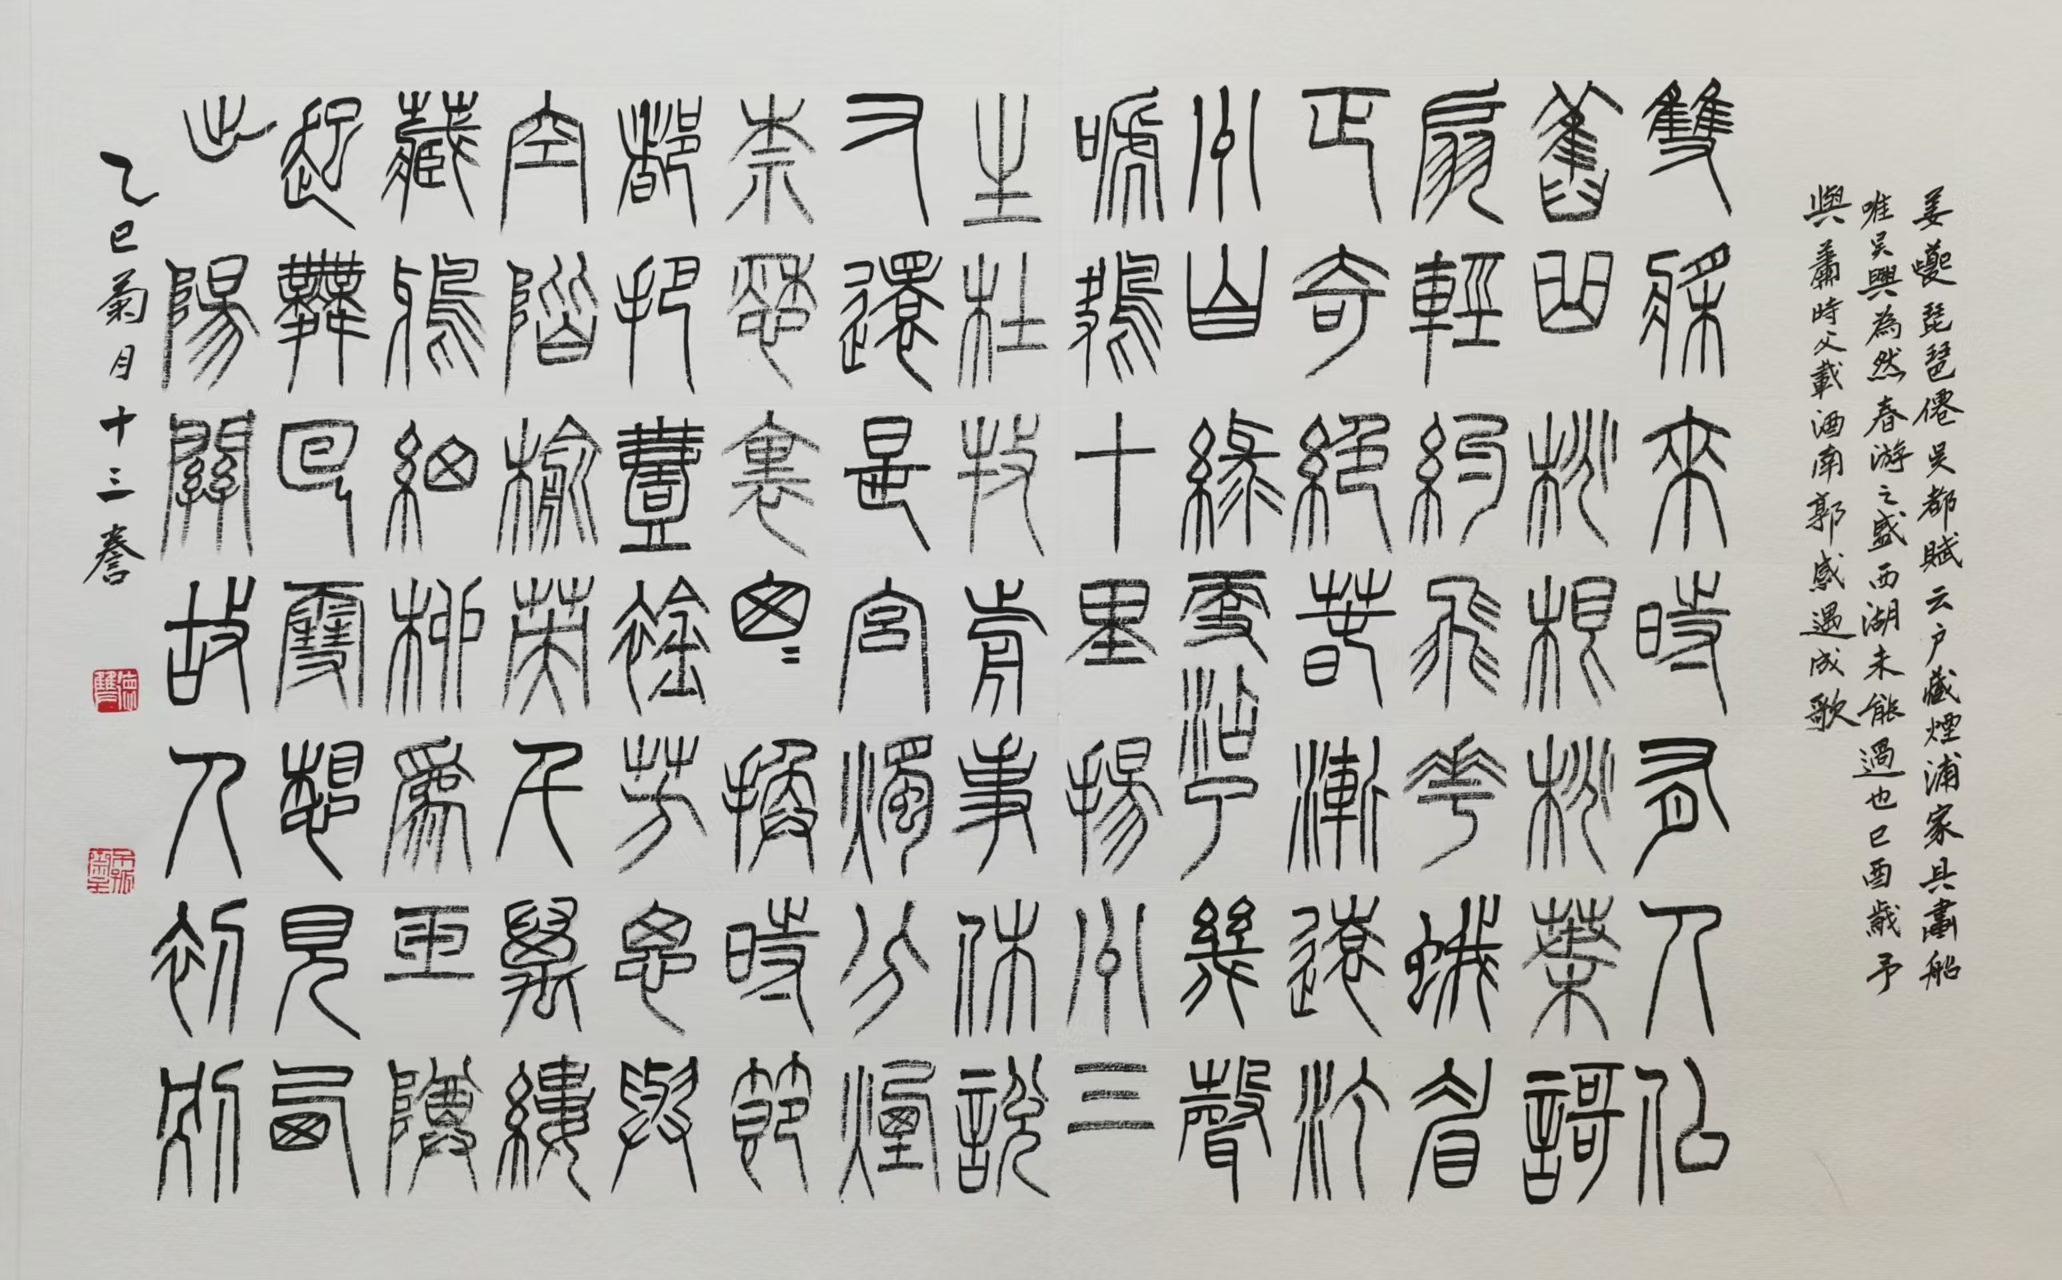 姜夔琵琶僊吳都賦云户藏煙浦家具畫船
唯吳興為然春游之盛西湖未能過也己酉歲予
與蕭時父載酒南郭感遇成歌
雙槳來時有人佀
舊曲桃根桃葉謌
扇輕約飛花蛾眉
正奇絕春漸遠汀
州自綠更添了幾聲
嗁鴂十里揚州三
生杜牧歬事休說
又還是宮燭分煙
奈愁裏匆〻換時節
都把壹襟芳思與
空階榆莢千萬縷
藏鴉細柳爲玉尊
起舞回雪想見西
出陽關故人初別
乙巳菊月十三謄